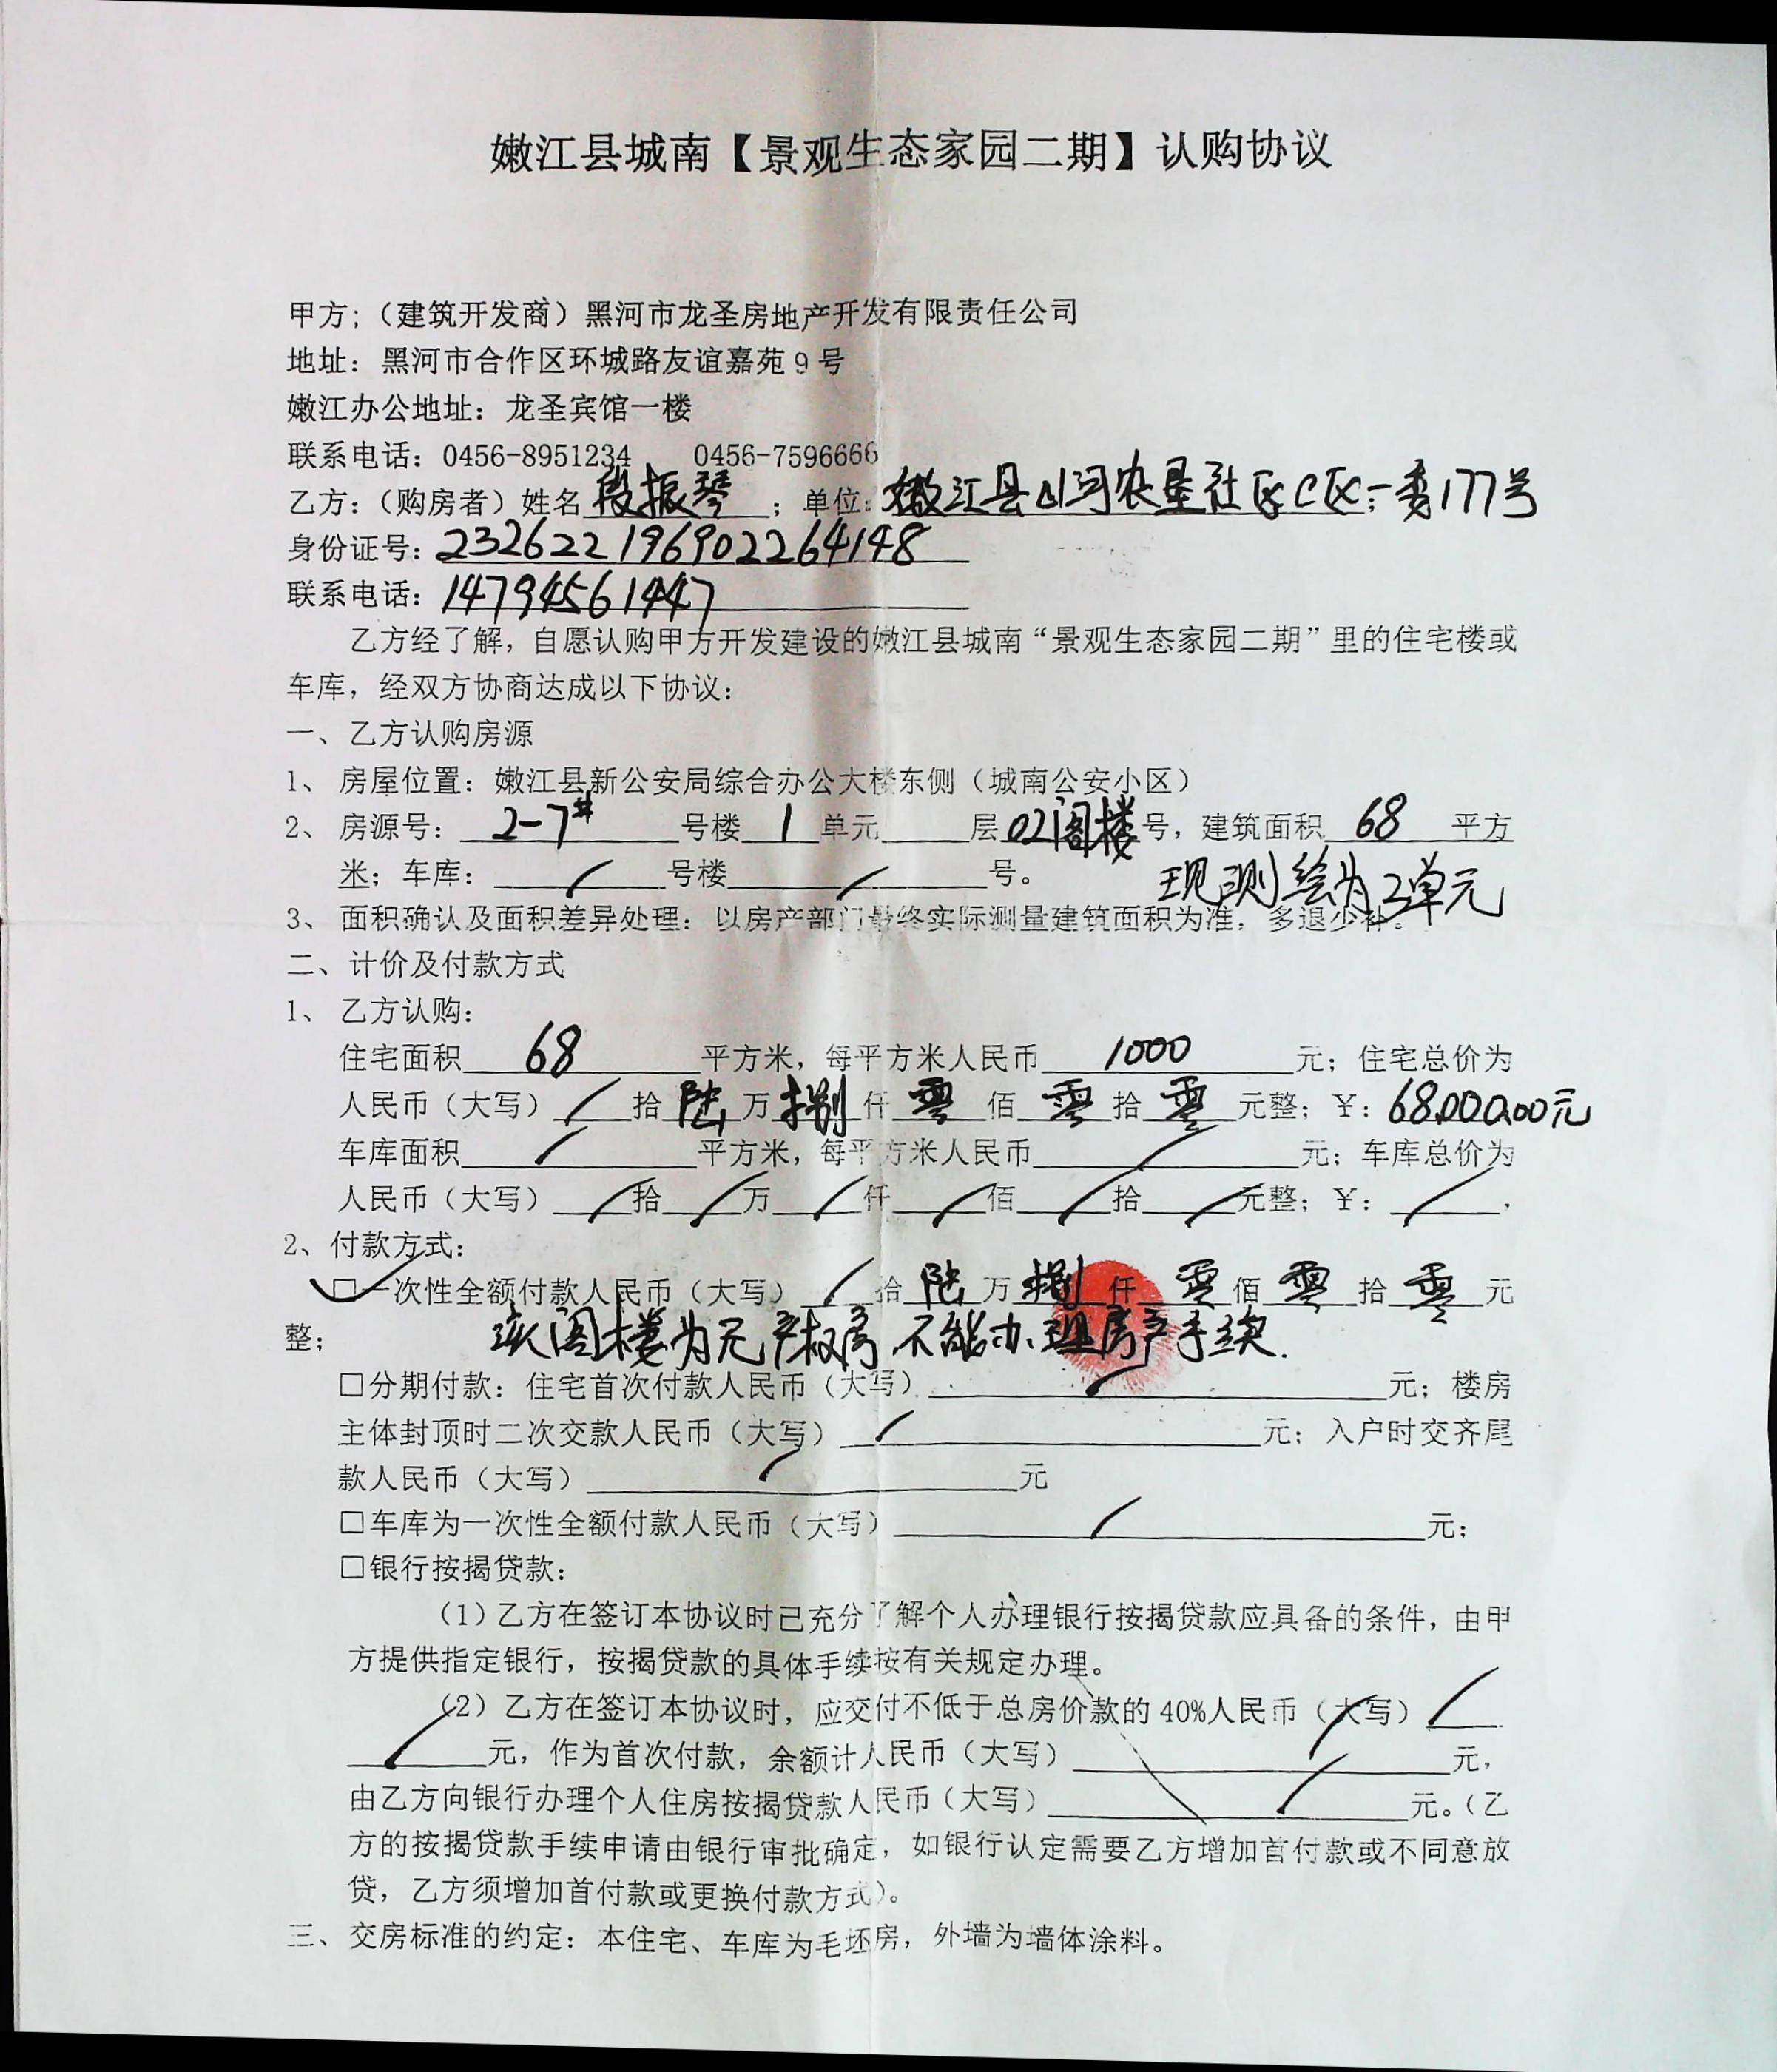 嫩江县城南【景观生态家园二期】认购协议
甲方;（建筑开发商）黑河市龙圣房地产开发有限责任公司
地址：黑河市合作区环城路友谊嘉苑9号
嫩江办公地址：龙圣宾馆一楼
联系电话：0456-8951234 0456-7596666
乙方：（购房者）姓名 段振琴 ；单位：嫩江县山河农垦社区C区一委177号
身份证号：232622196902264148
联系电话：14794561447
乙方经了解，自愿认购甲方开发建设的嫩江县城南“景观生态家园二期”里的住宅楼或
车库，经双方协商达成以下协议：
一、乙方认购房源
1、房屋位置：嫩江县新公安局综合办公大楼东侧（城南公安小区）
2、房源号：2-7# 号楼 1 单元 层 02阁楼 号，建筑面积 68 平方
米；车库： / 号楼 / 号。 现测绘为2单元
3、面积确认及面积差异处理：以房产部门最终实际测量建筑面积为准，多退少补。
二、计价及付款方式
1、乙方认购：
住宅面积 68 平方米，每平方米人民币 1000 元；住宅总价为
人民币（大写） / 拾 陆 万 捌 仟 零 佰 零 拾 零 元整；￥：68000.00元
车库面积 / 平方米，每平方米人民币 / 元；车库总价为
人民币（大写） / 拾 / 万 / 仟 / 佰 / 拾 / 元整；￥： / .
2、付款方式：
☑一次性全额付款人民币（大写） / 拾 陆 万 捌 仟 零 佰 零 拾 零 元
整； 该阁楼为无产权房，不能办理房产手续.
□分期付款：住宅首次付款人民币（大写） / 元；楼房
主体封顶时二次交款人民币（大写） / 元；入户时交齐尾
款人民币（大写） / 元
□车库为一次性全额付款人民币（大写） / 元；
□银行按揭贷款：
（1）乙方在签订本协议时已充分了解个人办理银行按揭贷款应具备的条件，由甲
方提供指定银行，按揭贷款的具体手续按有关规定办理。
（2）乙方在签订本协议时，应交付不低于总房价款的40%人民币（大写） /
/ 元，作为首次付款，余额计人民币（大写） / 元，
由乙方向银行办理个人住房按揭贷款人民币（大写） / 元。（乙
方的按揭贷款手续申请由银行审批确定，如银行认定需要乙方增加首付款或不同意放
贷，乙方须增加首付款或更换付款方式）。
三、交房标准的约定：本住宅、车库为毛坯房，外墙为墙体涂料。